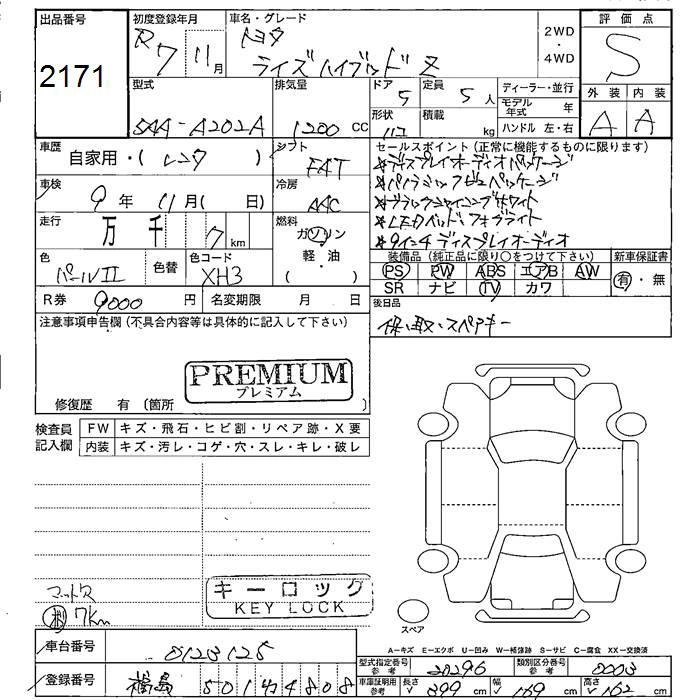 出品番号
2171
初度登録年月
R 7 11月
車名・グレード
トヨタ
ライズ ハイブリッド Z
2WD
・
4WD
評価点
S
外装 内装
A A
型式
5AA-A202A
排気量
1200 CC
ドア
5
定員
5人
形状
積載
kg
ディーラー・並行
モデル年式 年
ハンドル 左・右
車歴
自家用・( レンタ )
シフト
FAT
セールスポイント(正常に機能するものに限ります)
★ディスプレイオーディオパッケージ
★パノラミックビューパッケージ
★ブラックシャイニングホワイト
★LEDヘッド フォグライト
★9インチディスプレイオーディオ
車検
9年 11月( 日)
冷房
AAC
走行
万 千 7 km
燃料
ガソリン
・軽・油
( )
色
パールII
色替
色コード
XH3
装備品(純正品に限り○をつけて下さい)
PS PW ABS エアB AW
SR ナビ TV カワ
新車保証書
有・無
R券 9000 円
名変期限 月 日
後日品
保・取・スペアキー
注意事項申告欄(不具合内容等は具体的に記入して下さい)
PREMIUM
プレミアム
修復歴 有(箇所 )
検査員記入欄
FW キズ・飛石・ヒビ割・リペア跡・X要
内装 キズ・汚レ・コゲ・穴・スレ・キレ・破レ
マット欠
7km
キーロック
KEY LOCK
スペア
A－キズ E－エクボ U－凹み W－補修跡 S－サビ C－腐食 XX－交換済
車台番号
0123125
登録番号
福島 501 そ 4808
型式指定番号
参考
20296
類別区分番号
参考
0003
車庫証明用
参考
長さ 399 cm
幅 169 cm
高さ 162 cm